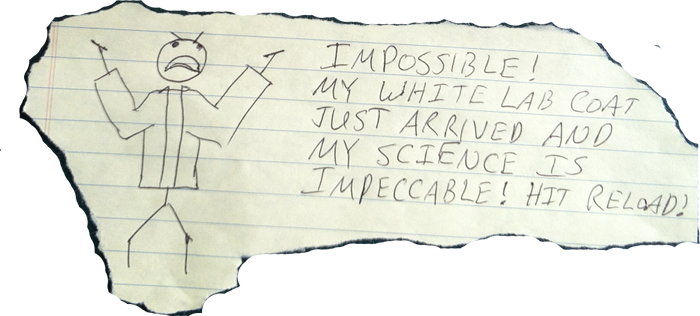 IMPOSSIBLE!
MY WHITE LAB COAT
JUST ARRIVED AND
MY SCIENCE IS
IMPECCABLE! HIT RELOAD!